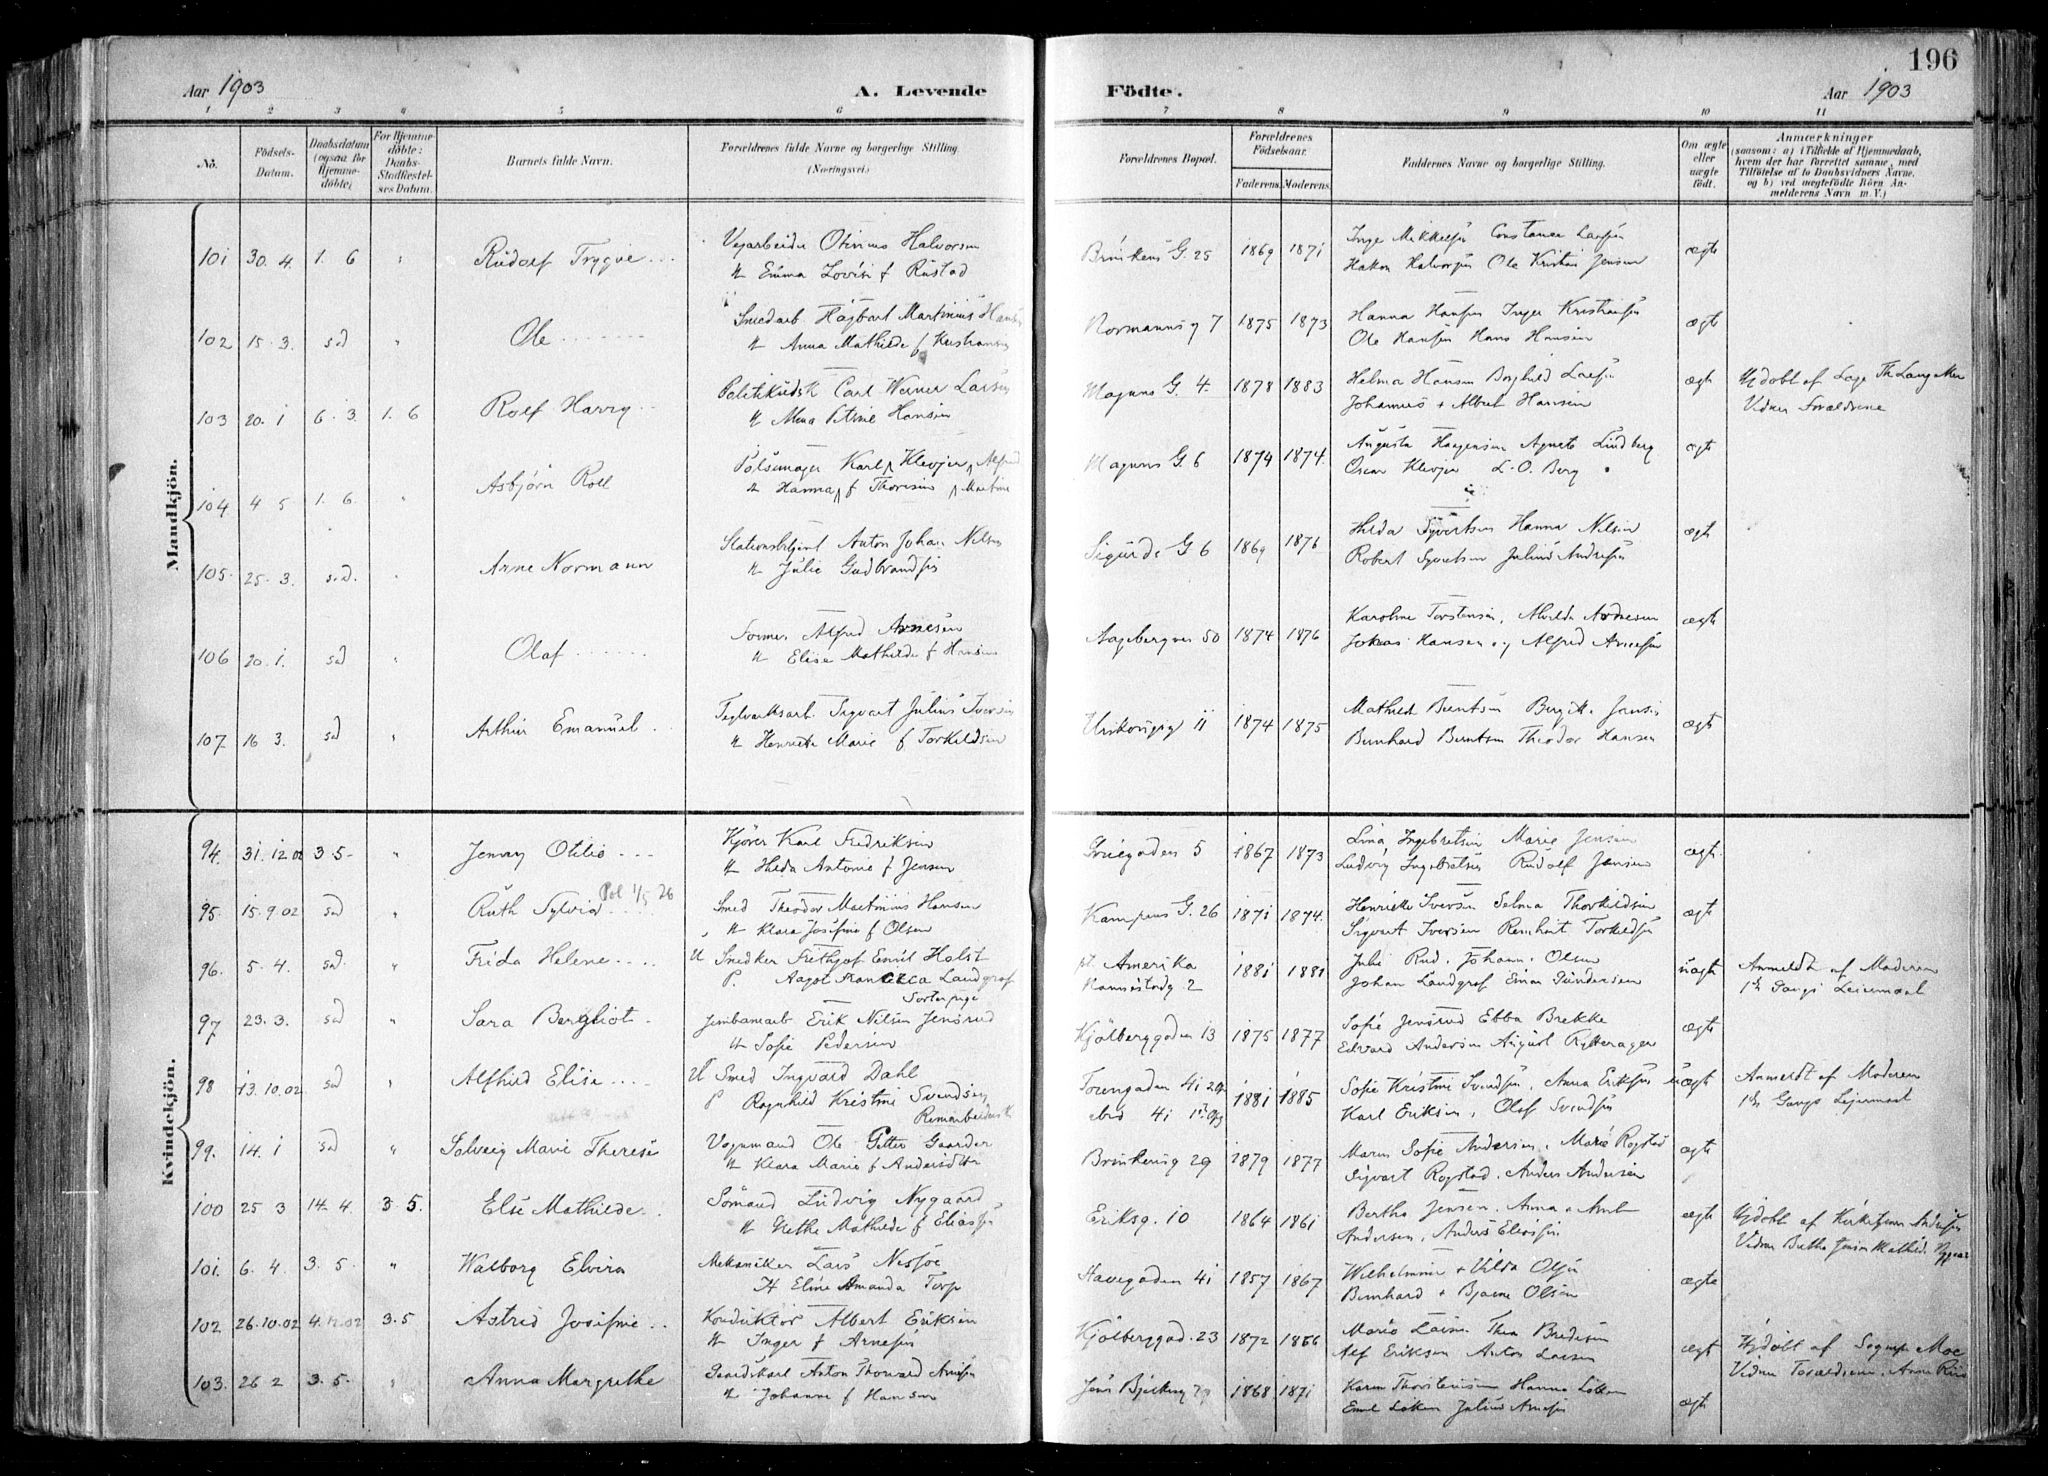 196
Aar 1903 A. Levende Födte. Aar 1903
1 2 3 4 5 6 7 8 9 10 11
No. Födsels-Datum. Daabsdatum (ogsaa for Hjemmedöbte) For Hjemmedöbte: Daabs-Stadfæstelses Datum. Barnets fulde Navn. Forældrenes fulde Navne og borgerlige Stilling. (Næringsvei.) Forældrenes Bopæl. Forældrenes Födselsaar. Faderens. Moderens. Faddernes Navne og borgerlige Stilling. Om ægte eller uægte födt. Anmærkninger (saasom: a) i Tilfælde af Hjemmedaab, hvem der har forrettet samme, med Tilföielse af to Daabsvidners Navne, og b) ved uægtefödte Börn Anmelderens Navn m. V.)
Mandkjön.
101 30.4. 1. 6 " Rudolf Trygve Vejarbeider Otinius Halvorsen Brinkens G. 25 1869 1871 Inge Mikkelsen Constance Larsen ægte
H Emma Lovise f Rustad Hakon Halvorsen Ole Kristian Jensen
102 15.3. sad " Ole Smedarb Hagbart Martinius Hansen Normannsg 7 1875 1873 Hanna Hansen Inger Kristiansen ægte
H Anna Mathilde f Kristiansen Ole Hansen Hans Hansen
103 20.1 6.3. 1.6 Rolf Harry Politikudsk Carl Werner Larsen Magnus G. 4. 1878 1883 Helma Hansen Borghild Larsen ægte Hjdöbt af Læge Th
H Alma Petrine Hansen Johannes + Albert Hansen Vidner Forældrene
104 4 5 1. 6. " Asbjørn Roll Pölsemager Karl Klevjer Alfred Magnus G. 6 1874 1874. Augusta Haagensen Agnete Lindberg ægte
H Hanna f Thoresen Martine Oscar Klevjer L. O. Berg
105. 25.3. sad. " Arne Normann Stationsbetjent Anton Johan Nilsen Sigurds G 6 1869 1876 Hilda Syvertsen Hanna Nilsen ægte
H Julie Gudbrandsen Robert Syvertsen Julius Andresen
106 20.1. sad " Olaf Former Alfred Arnesen Aagebergvn 50 1874 1876 Karoline Torstensen, Alvilda Andresen ægte
H Elise Mathilde f Hansen Johan Hansen og Alfred Arnesen
107 16 3. sad " Arthur Emanuel Teglværksarb. Sigvart Julius Iversen 11 1874 1875 Mathilde Berntsen Bergitte Jensen ægte
H Henriette Marie f Torkildsen Bernhard Berntsen Theodor Hansen
Kvindekjön.
94. 31.12.02 3 5. " Jenny Otilie Kjörer Karl Fredriksen 5 1867 1873 Lina Ingebretsen Marie Jensen ægte.
H Hilda Antonie f Jensen Ludvig Ingebretsen Rudolf Jensen
95. 15.9.02 sad " Ruth Sylvia Pol 1/5 26 Smed Theodor Martinius Hansen Kampens G. 26 1871 1874. Henriette Iversen Selma Thorkildsen ægte
H Klara Josefine f Olsen Sigvart Iversen Reinhart Torkildsen
96. 5.4. sad. " Frida Helene U Snedker Frithjof Emil Holst pt. Amerika 1881 1881 Julie Rud. Johann. Olsen uægte Anmeldt af Moderen
P. Aagot Francisca Landgraf Johan Landgraf Einar Gundersen 1ste Gangs Leiermaal
97 23.3. sad " Sara Bergliot Jernbanearb Erik Nilsen Jensrud Kjölberggaden 13 1875 1877 Sofie Jensrud Ebba Brekke ægte
H Sofie Pedersen Edvard Andersen August Rytterager
98 13.10.02 sad " Alfhild Elise U Smed Ingvard Dahl 1881 1885 Sofie Kristine Svendsen, Anna Eriksen uægte Anmeldt af Moderen
P Ragnhild Kristine Svendsen Karl Eriksen, Olaf Svendsen 1ste Gangs Leiermaal
99. 14.1 sad " Solveig Marie Therese Vognmand Ole Petter Gaarder Brinkensg 29 1879 1877 Maren Sofie Andersen. Marie Rogstad ægte
H Klara Marie f Andersdtr Sigvart Rogstad. Anders Andersen
100 25 3 14.4. 3.5. Else Mathilde Sömand Ludvig Nygaard Eriksg. 10 1864 1861 Bertha Jensen. Anna + Axel ægte
H Grethe Mathilde f Eliassen Andersen, Anders Eliassen
101. 6.4. 3.5. " Walborg Elvira Mekaniker Lars Nesjöe Havegaden 41 1857 1867 Wilhelmine + Hilda Olsen ægte
H Eline Amanda Torp Bernhard + Bjarne Olsen
102 26.10.02 4.12.02 3.5 Astrid Josefine Konduktör Albert Eriksen Kjölberggad. 23 1872 1866 Marie Larsen Thea Bredesen ægte Hjdöbt af Sognep Moe
H Inger f Arnesen Alf Eriksen Anton Larsen Vidner Forældrene. Anne Riis
103. 26 2 3.5. " Anna Margrethe Gaardskarl Anton Thorvard Arnesen Jens Bjelkesg 29 1868 1871 Karen Thorstensen Hanna Løken ægte
H Johanne f Hansen Emil Løken Julius Arnesen